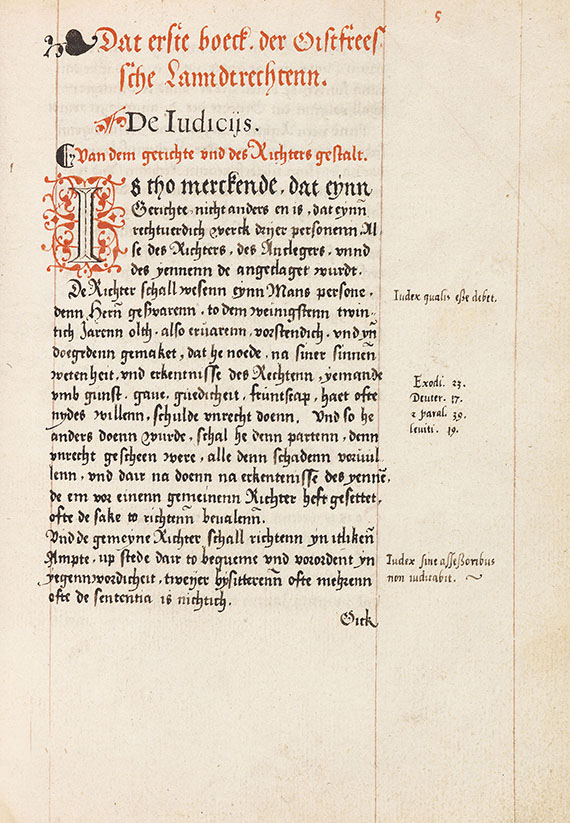 5
Dat erste boeck. der Oistfrees
sche Lanndtrechtenn.
De Iudicijs.
Van dem gerichte vnd des Richters gestalt.
Is tho merckende, dat eynn
Gerichte, nicht anders en is, dat eynn
rechtuerdich werck drijer personenn, Al
se des Richters, des Anclegers, vnnd
des yennenn de angeclaget wurdt.
De Richter schall wesenn eynn Mans persone,
denn Hern geswarenn, to dem weinigstenn twin,
tich Jarenn olth, also eruarenn, vorstendich, vnd yn
doegedenn gemaket, dat he noede, na siner sinnen
wetenheit, vnd erkentenisse des Rechtenn, yemande
vmb gunst, gaue, giredicheit, fruntscap, haet ofte
nydes willenn, schulde vnrecht doenn. Vnd so he
anders doenn wurde, schal he denn partenn, denn
vnrecht gescheen were, alle denn schadenn voruul
lenn, vnd dair na doenn na erkentenisse des yenne,
de em vor einenn gemeinenn Richter heft gesettet,
ofte de sake to richtenn beualenn.
Vnd de gemeyne Richter schall richtenn yn itliken
Ampte, up stede dair to bequeme vnd vorordent yn
yegennwordicheit, tweyer bysitterenn ofte mehrenn
ofte de sententia is nichtich.
Oick
Iudex qualis esse debet.
Exodi. 23.
Deuter. 17.
2 paral. 39.
leuiti. 19.
Iudex sine assessoribus
non iudicabit.